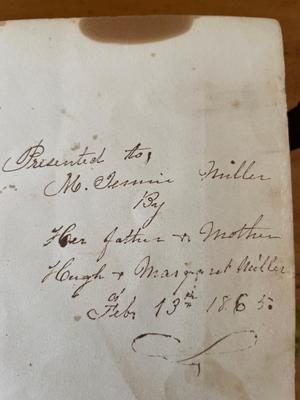 Presented to,
M. Jennie Miller
By
Her father & Mother
Hugh & Margaret Miller
Feb. 13th 1865.